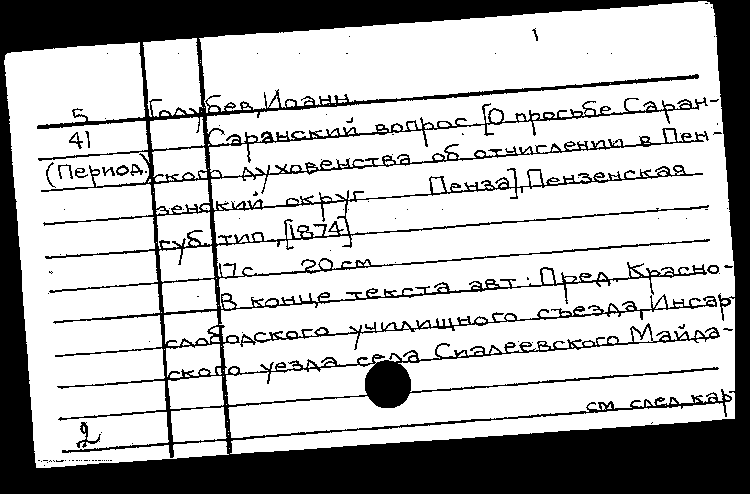 1
5 Голубев, Иоанн.
41 Саранский вопрос. [О просьбе Саран-
(Период.) ского духовенства об отчислении в Пен-
зенский округ. Пенза], Пензенская
губ. тип., [1874]
17 с. 20 см
В конце текста авт.: Пред. Красно-
слободского училищного съезда, Инсар-
ского уезда села Сиалеевского Майда-
см. след. кар
2